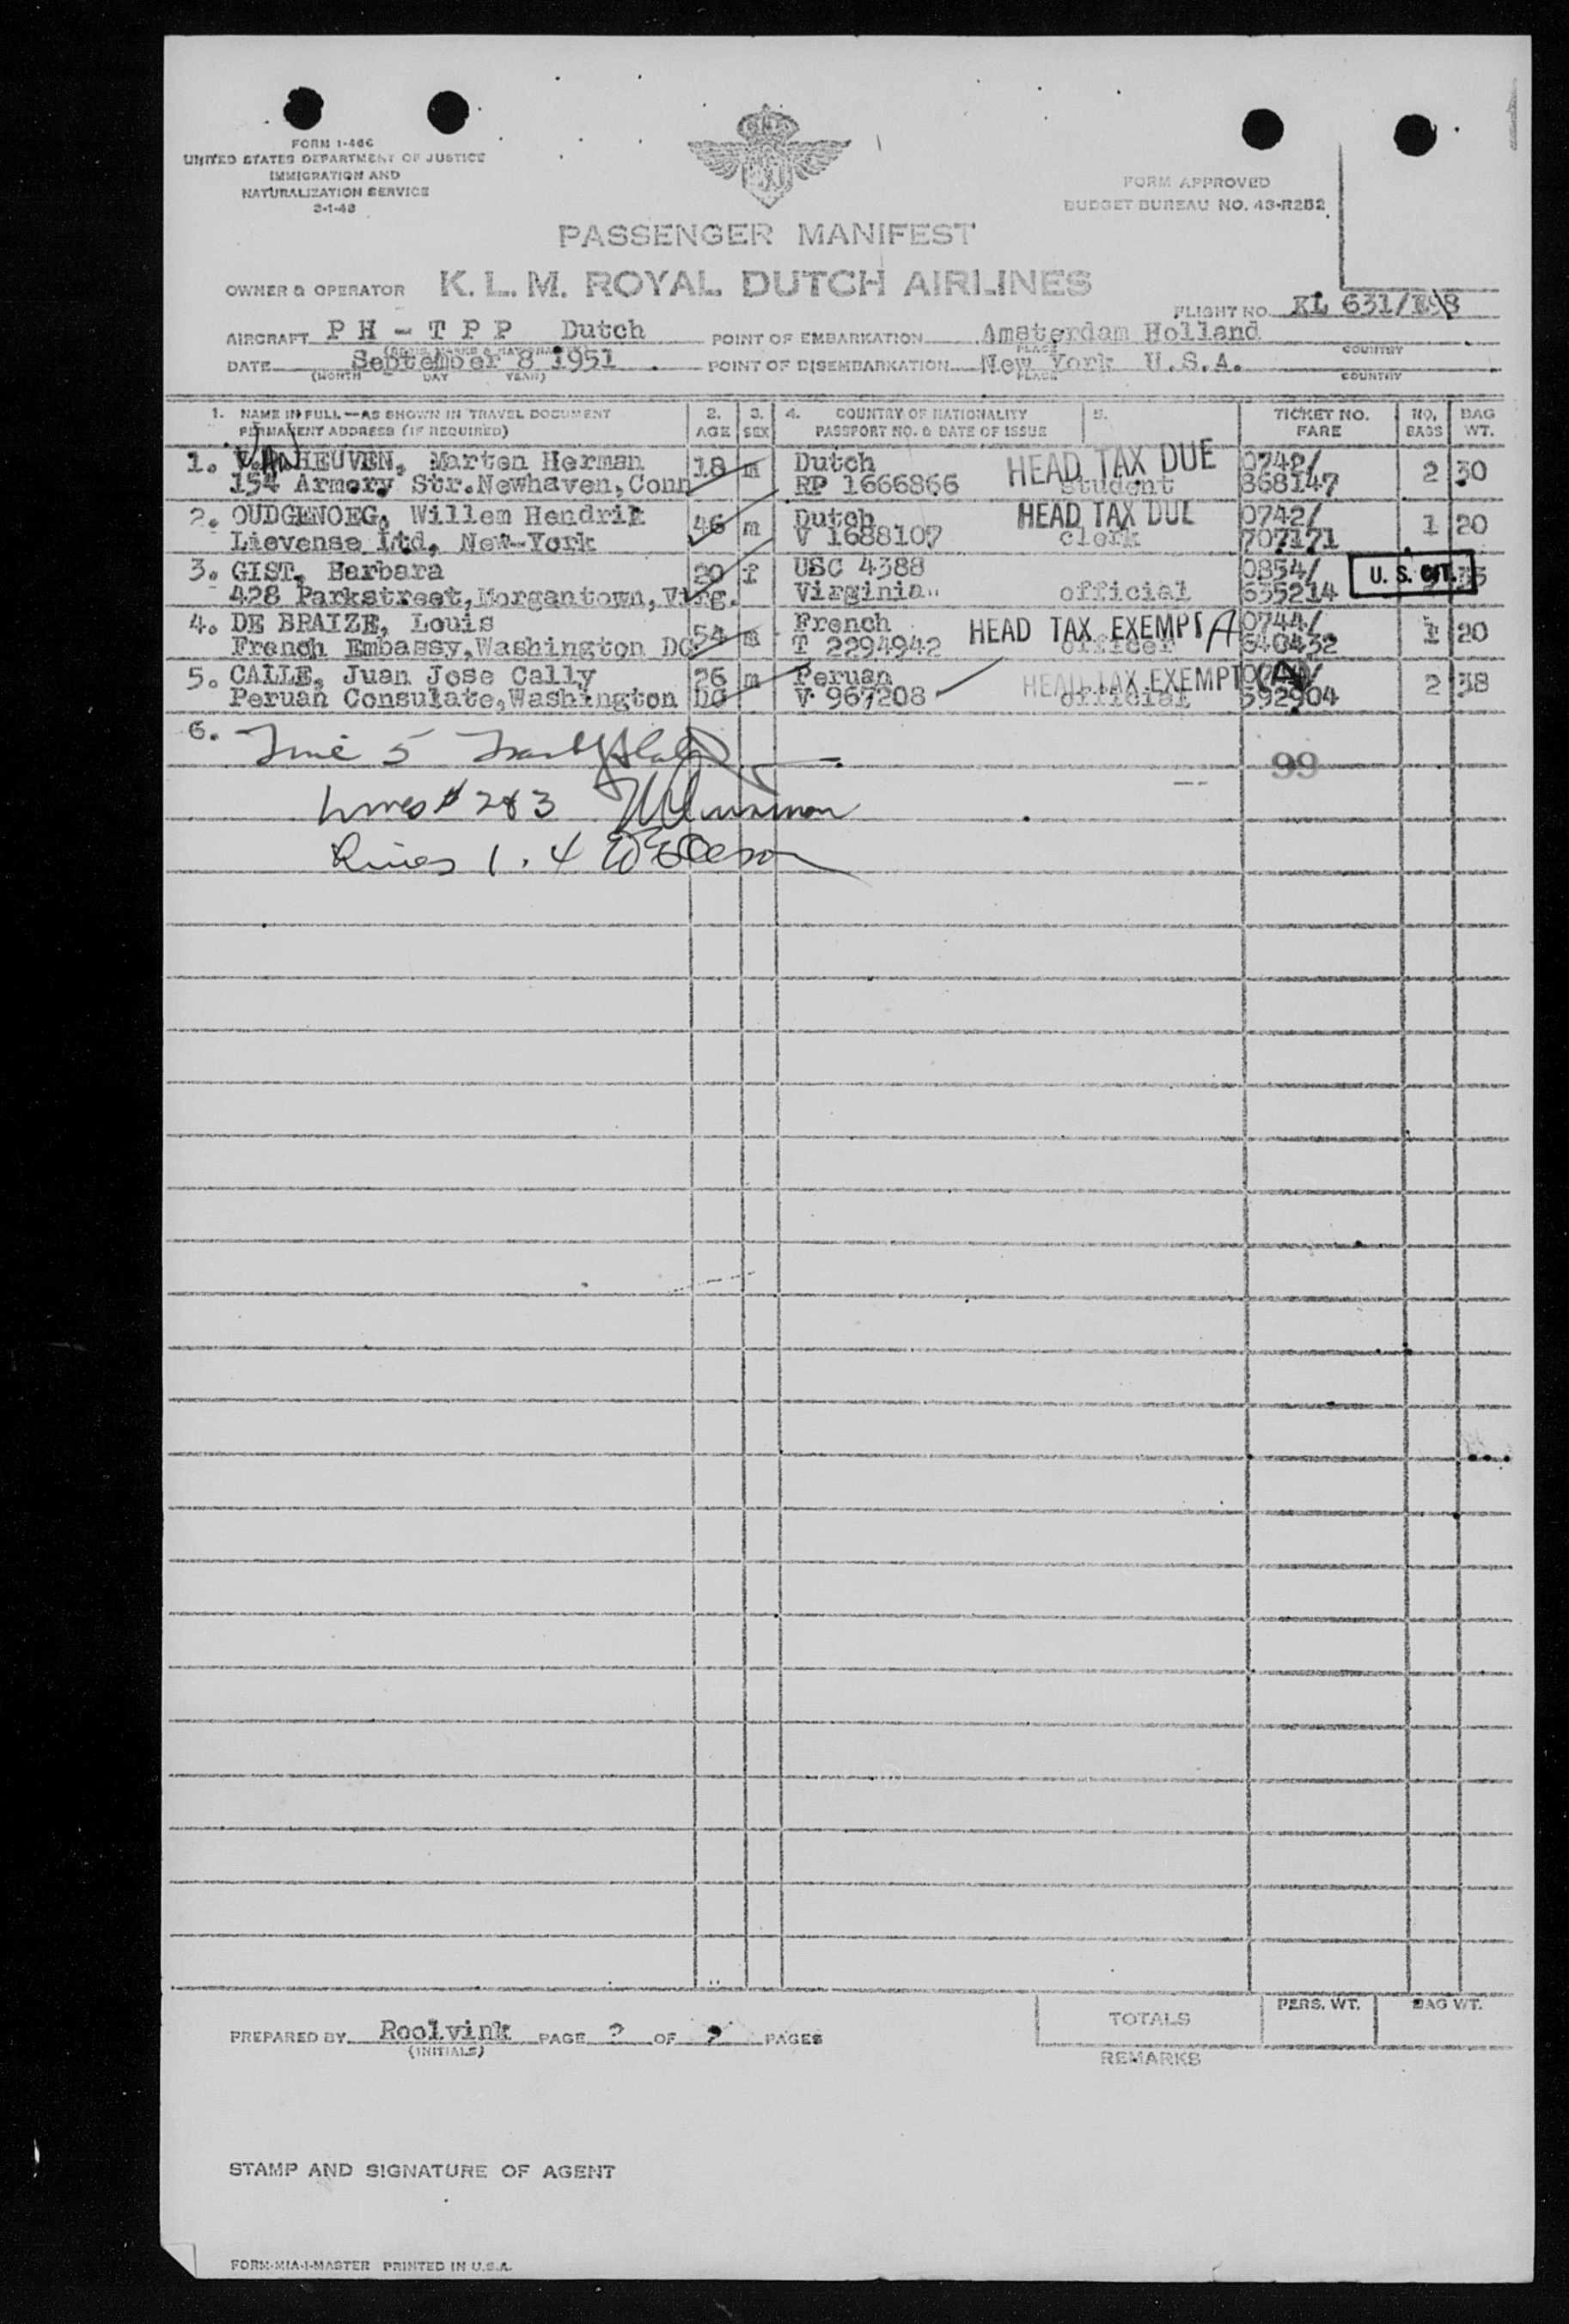 FORM I-466
UNITED STATES DEPARTMENT OF JUSTICE
IMMIGRATION AND
NATURALIZATION SERVICE
FORM APPROVED
BUDGET BUREAU NO. 43-R252
PASSENGER MANIFEST
OWNER & OPERATOR K. L. M. ROYAL DUTCH AIRLINES
FLIGHT NO. KL 631/
AIRCRAFT P H - T P P Dutch POINT OF EMBARKATION Amsterdam Holland
PLACE COUNTRY
DATE September 8 1951 POINT OF DISEMBARKATION New York U.S.A.
(MONTH DAY YEAR) PLACE COUNTRY
1. NAME IN FULL—AS SHOWN IN TRAVEL DOCUMENT 2. 3. 4. COUNTRY OF NATIONALITY 5. TICKET NO. NO. BAG
PERMANENT ADDRESS (IF REQUIRED) AGE SEX PASSPORT NO. & DATE OF ISSUE FARE BAGS WT.
1. HEUVEN, Marten Herman 18 m Dutch HEAD TAX DUE 0742/ 2 30
154 Armory Str.Newhaven,Conn RP 1666866 student 868147
2. OUDGENOEG, Willem Hendrik 46 m Dutch HEAD TAX DUE 0742/ 1 20
Lievense Ltd, New-York V 1688107 clerk 707171
3. GIST, Barbara 20 f USC 4388 0854/ U. S. CIT.
428 Parkstreet,Morgantown,Virg. Virginia official 635214
4. DE BRAIZE, Louis 54 m French HEAD TAX EXEMPT A 0744/ 1 20
French Embassy,Washington DC T 2294942 officer 640432
5. CALLE, Juan Jose Cally 26 m Peruan HEAD TAX EXEMPT 2 38
Peruan Consulate,Washington DC V 967208 official 592904
6. Line 5
99
Lines # 2&3
Lines 1 . 4
PREPARED BY Roolvink PAGE 2 OF 2 PAGES
(INITIALS)
TOTALS PERS. WT. BAG WT.
REMARKS
STAMP AND SIGNATURE OF AGENT
FORM-MIA-1-MASTER PRINTED IN U.S.A.